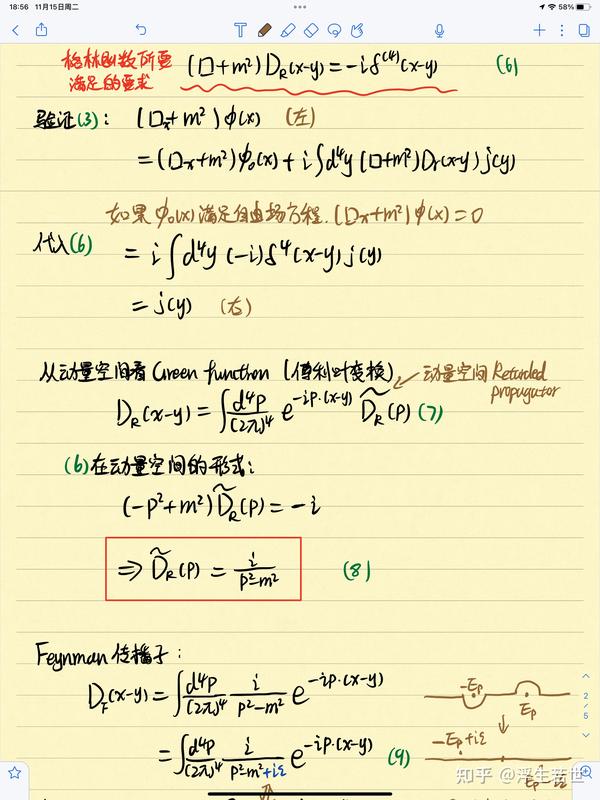 18:56 11月15日周二
58%
格林函数所要 (□+m²)D_R(x-y)=-iδ⁽⁴⁾(x-y) (6)
满足的要求
验证(3): (□ₓ+m²)φ(x) (左)
=(□ₓ+m²)φ₀(x)+i∫d⁴y(□+m²)Dᵣ(x-y)j(y)
如果φ₀(x)满足自由场方程.(□ₓ+m²)φ(x)=0
代入(6) = i∫d⁴y(-i)δ⁴(x-y)j(y)
= j(y) (右)
从动量空间看Green function(傅利叶变换)
动量空间Retarded
propagator
D_R(x-y)=∫d⁴p/(2π)⁴ e^{-ip·(x-y)} D̃_R(p) (7)
(6)在动量空间的形式:
(-p²+m²)D̃_R(p)=-i
⇒D̃_R(p)=i/(p²-m²) (8)
Feynman传播子:
D_F(x-y)=∫d⁴p/(2π)⁴ i/(p²-m²) e^{-ip·(x-y)}
-Eₚ Eₚ
=∫d⁴p/(2π)⁴ i/(p²-m²+iε) e^{-ip·(x-y)} (9)
-Eₚ+iε
Eₚ-iε
2
5
知乎 @浮生若世